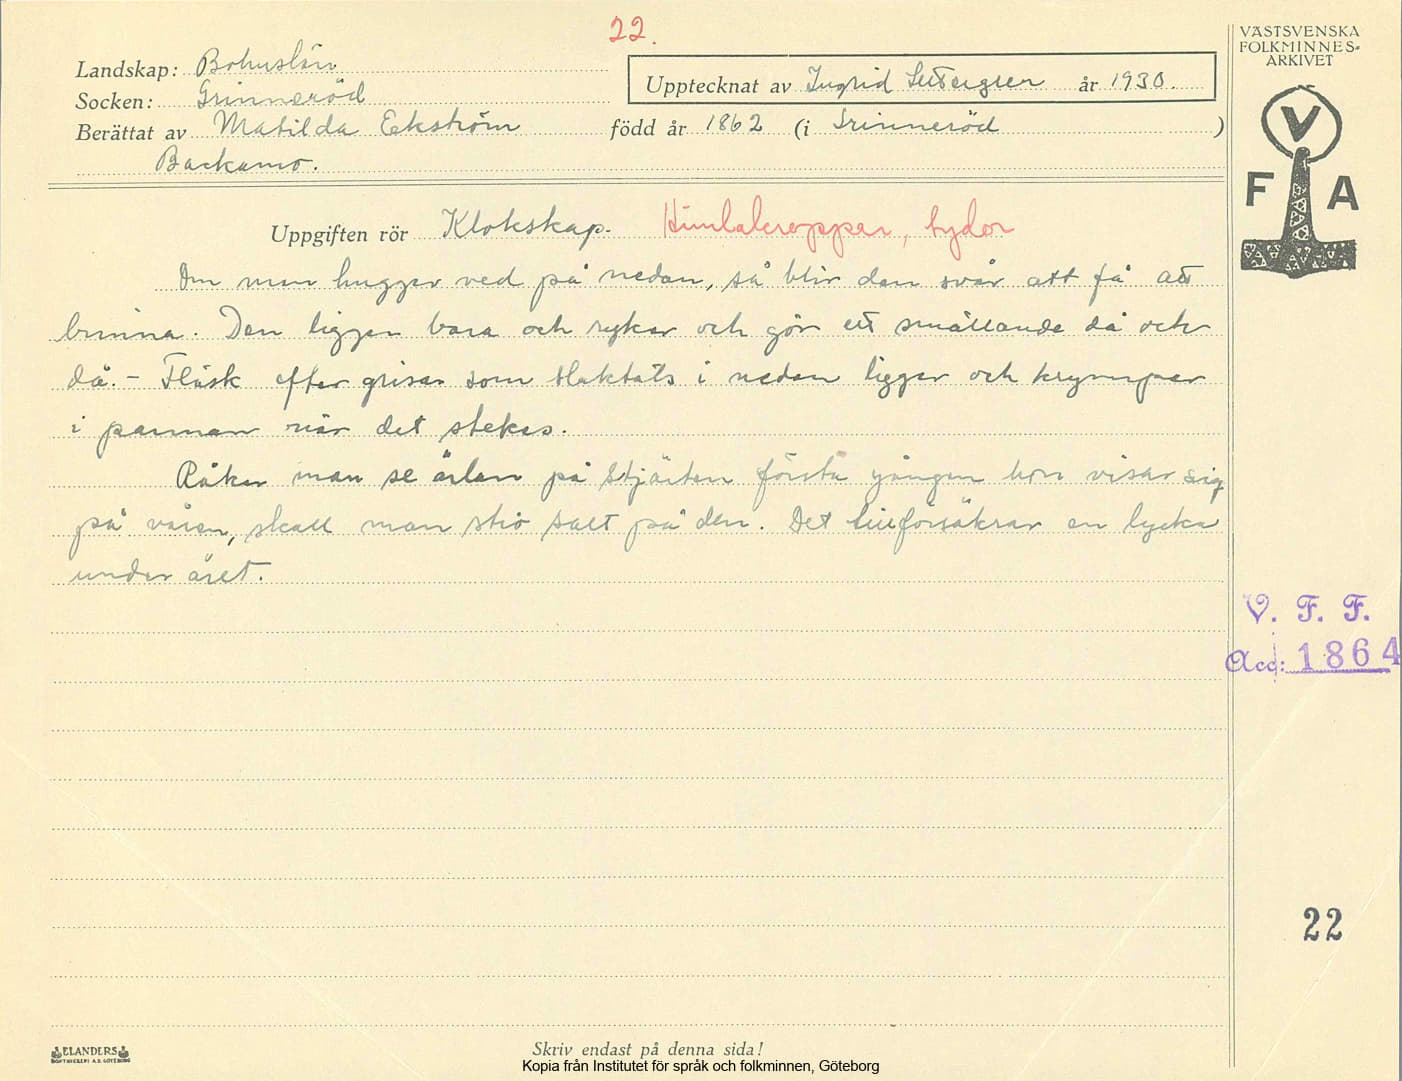 22.
VÄSTSVENSKA
FOLKMINNES-
ARKIVET
Landskap: Bohuslän
Socken: Grinneröd
Upptecknat av Ingrid år 1930.
Berättat av Matilda Eckström född år 1862 (i Grinneröd)
Backamo.
V
F A
Uppgiften rör Klokskap. Himlakroppar, tydor
Om man hugger ved på nedan, så blir den svår att få att
brinna. Den ligger bara och ryker och gör ett smällande då och
då. - Fläsk efter grisar som slaktats i nedan ligger och krymper
i pannan när det stekes.
Råkar man se ärlan på stjärten första gången hon visar sig
på våren, skall man strö salt på den. Det tillförsäkrar en lycka
under året.
V. F. F.
Acc: 1864
22
ELANDERS
BOKTRYCKERI A.B. GÖTEBORG
Skriv endast på denna sida!
Kopia från Institutet för språk och folkminnen, Göteborg